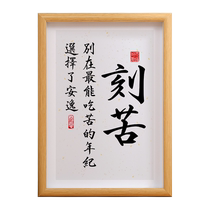 刻苦
別在最能吃苦的年紀
選擇了安逸